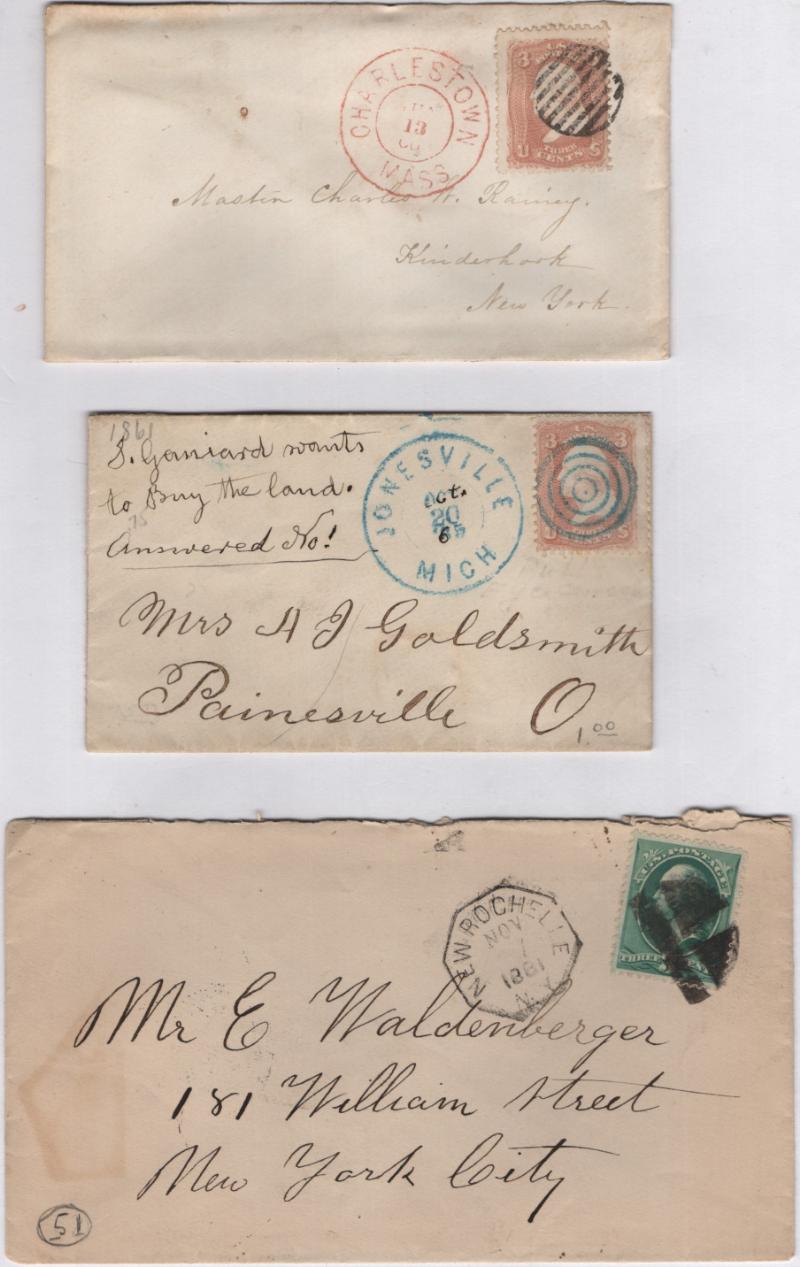 CHARLESTOWN
13
MASS
3
U THREE CENTS S
Charles W. Rainey.
Kinderhook
New York.
1861
S. Ganiard wants
to Buy the land.
Answered No!
75
JONESVILLE
Oct.
20
6
MICH
3 3
U S
Mrs A J Goldsmith
Painesville O
1.00
U.S. POSTAGE
THREE
NEW ROCHELLE
NOV
1
1881
N.Y.
Mr E Waldenberger
181 William Street
New York City
51